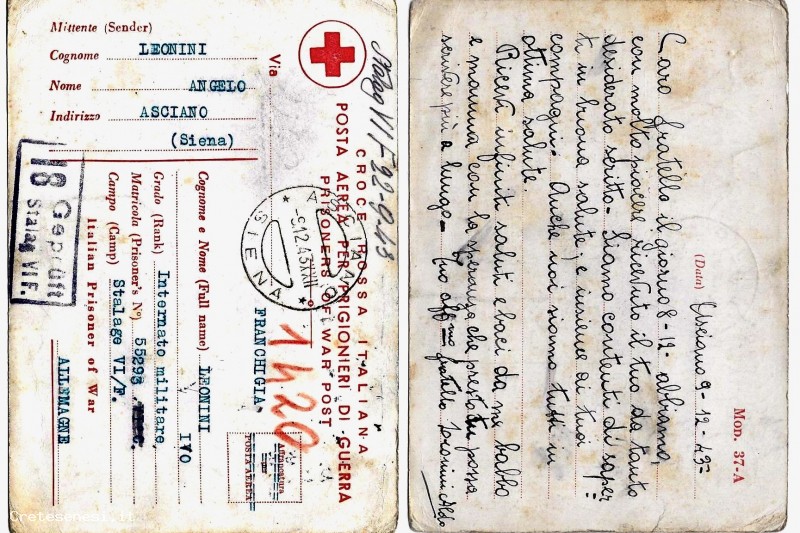 Mittente (Sender)
Cognome LEONINI
Nome ANGELO
Indirizzo ASCIANO
(Siena)
Via
CROCE ROSSA ITALIANA
POSTA AEREA PER PRIGIONIERI DI GUERRA
PRISONERS OF WAR POST
FRANCHIGIA
Affrancatura
POSTA AEREA
Cognome e Nome (Full name) LEONINI
IVO
Grado (Rank) Internato militare
Matricola (Prisoner's No) 55293
Campo (Camp) Stalage VI/F.
Italian Prisoner of War
ALLEMAGNE
18 Geprüft
Stalag VI F.
ASCIANO
9.12.43.XXII
SIENA
1420
Stalag VI F 22-9-43
Mod. 37-A
(Data) Asciano 9-12-43
Caro fratello il giorno 8-12- abbiamo,
con molto piacere ricevuto il tuo da tanto
desiderato scritto. Siamo contenti di saper-
ti in buona salute, e insieme ai tuoi
compagni. Anche noi siamo tutti in
ottima salute.
Ricevi infiniti saluti e baci da me babbo
e mamma con la speranza che presto tu possa
scrivere più a lungo. Tuo aff.mo fratello Leonini Aldo
Cretesenesi.it